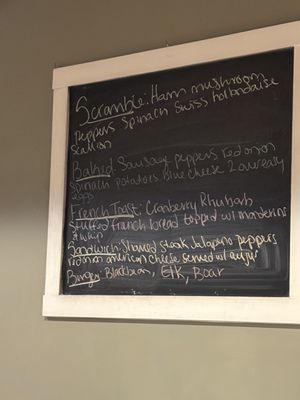 Scramble: Ham mushroom
Peppers Spinach Swiss hollandaise
Scallion
Baked: Sausage peppers red onion
Spinach potatoes Blue Cheese 2 overeasy
eggs
French Toast: Cranberry Rhubarb
Stuffed French bread topped w/
Sandwich: Shaved steak Jalapeno peppers
red onion american cheese served w/ aujus
Burger: Blackbean, Elk, Boar